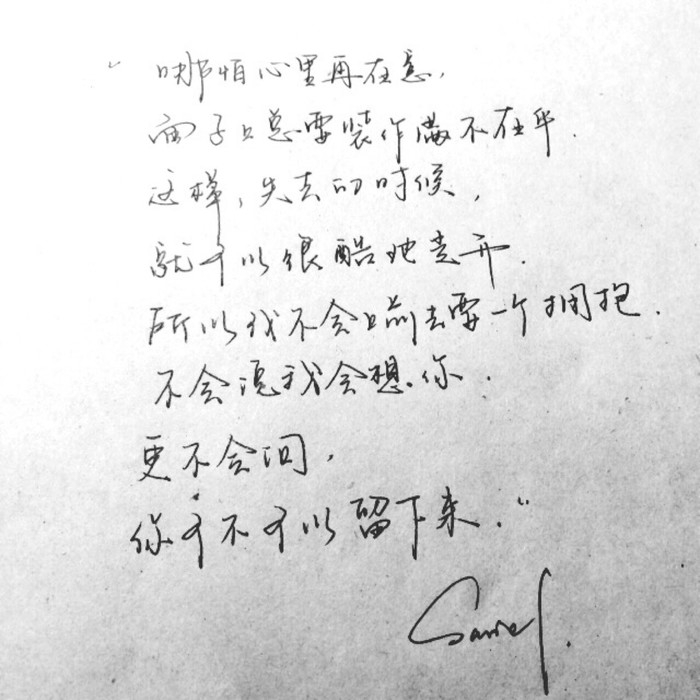 “哪怕心里再在意，
面子上总要装作满不在乎．
这样，失去的时候，
就可以很酷地走开．
所以我不会上前去要一个拥抱．
不会说我会想你．
更不会问，
你可不可以留下来．”